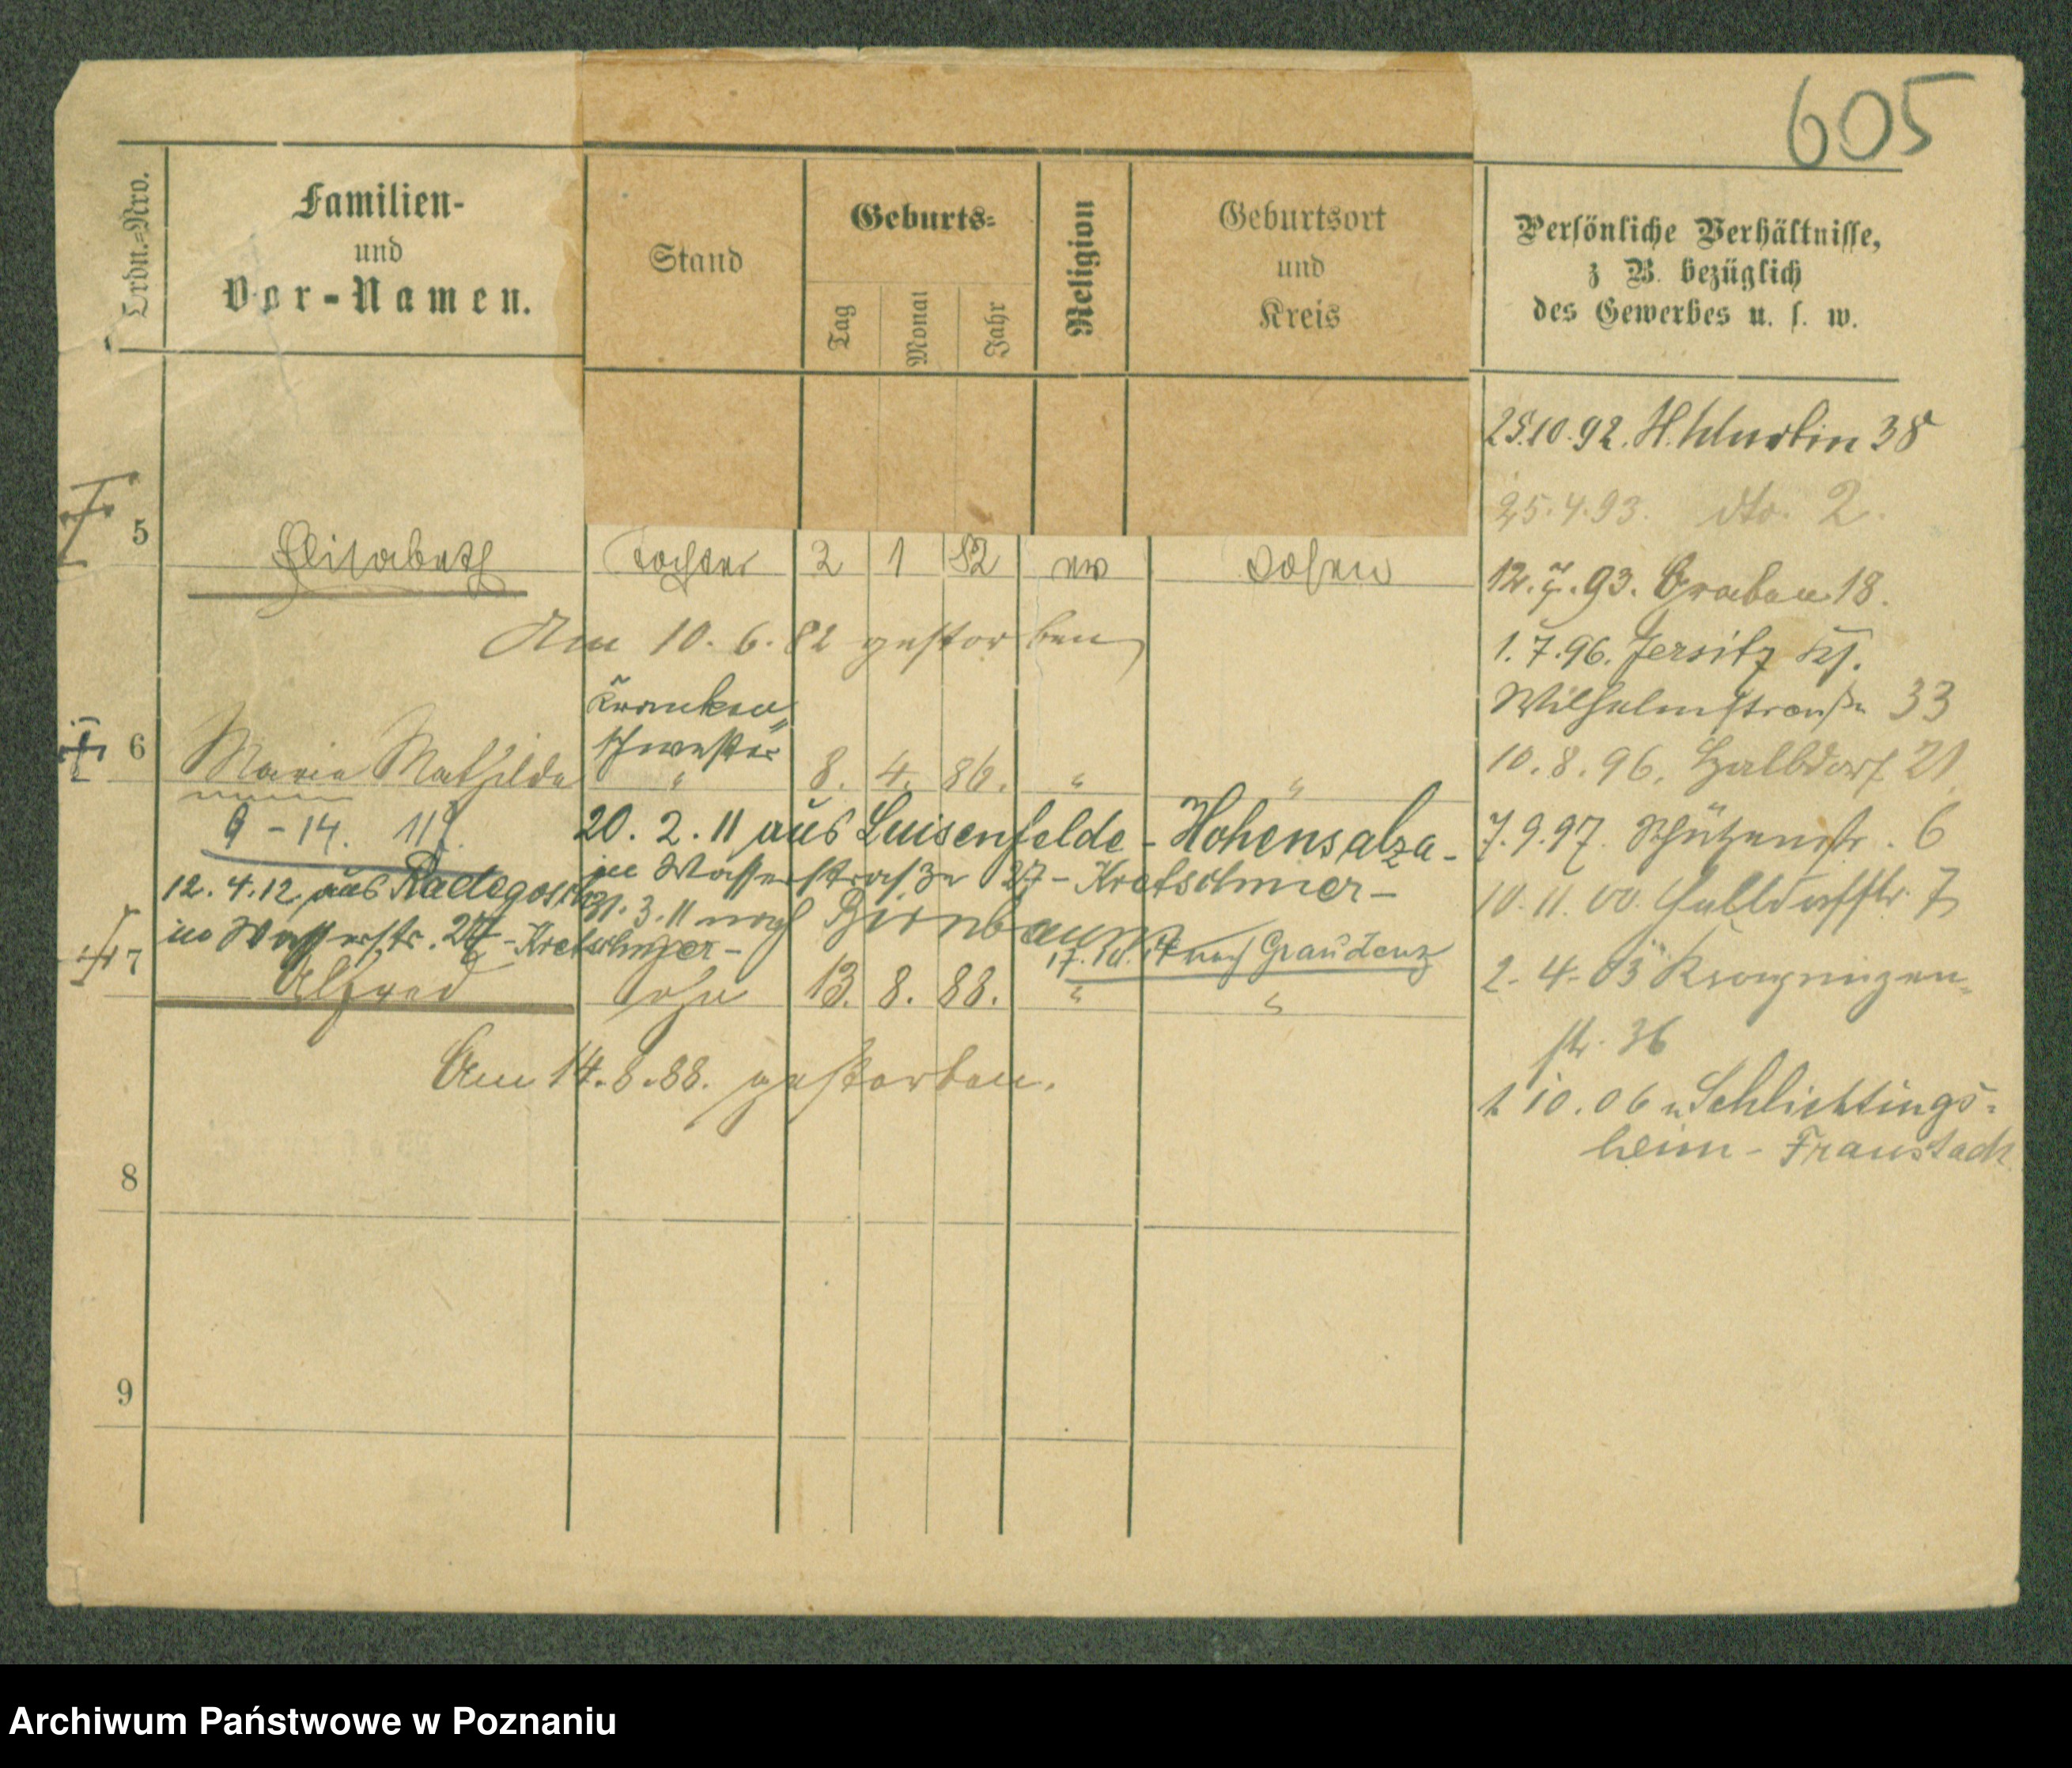 605
Ordn.-Nro.
Familien-
und
Vor-Namen.
Stand
Geburts-
Tag
Monat
Jahr
Religion
Geburtsort
und
Kreis
Persönliche Verhältnisse,
z B. bezüglich
des Gewerbes u. s. w.
5
Elisabeth Tochter 2 1 82 ev Posen
Am 10. 6. 82 gestorben
Kranken
schwester
6
Maria Mathilde " 8. 4. 86. " "
9 - 14.
20. 2. 11 aus Luisenfelde - Hohensalza -
in Wasserstraße 27 - Kretschmer -
12. 4. 12 aus Radegosch
31. 3. 11 nach Birnbaum
in Wasserstr. 27 - Kretschmer -
nach Graudenz
7
Alfred Sohn 13. 8. 88. " "
Am 14. 8. 88. gestorben.
8
9
25.10.92. 38
25.4.93. dto. 2.
12.7.93. Graben 18.
1.7.96. Jersitz
Wilhelmstraße 33
10.8.96. Halbdorf 21
7.9.97. Schützenstr. 6
10.11.00. Halbdorfstr. 7
2.4.05 Kronprinzen-
str. 36
1.10.06 n. Schlichtings-
heim - Fraustadt
Archiwum Państwowe w Poznaniu